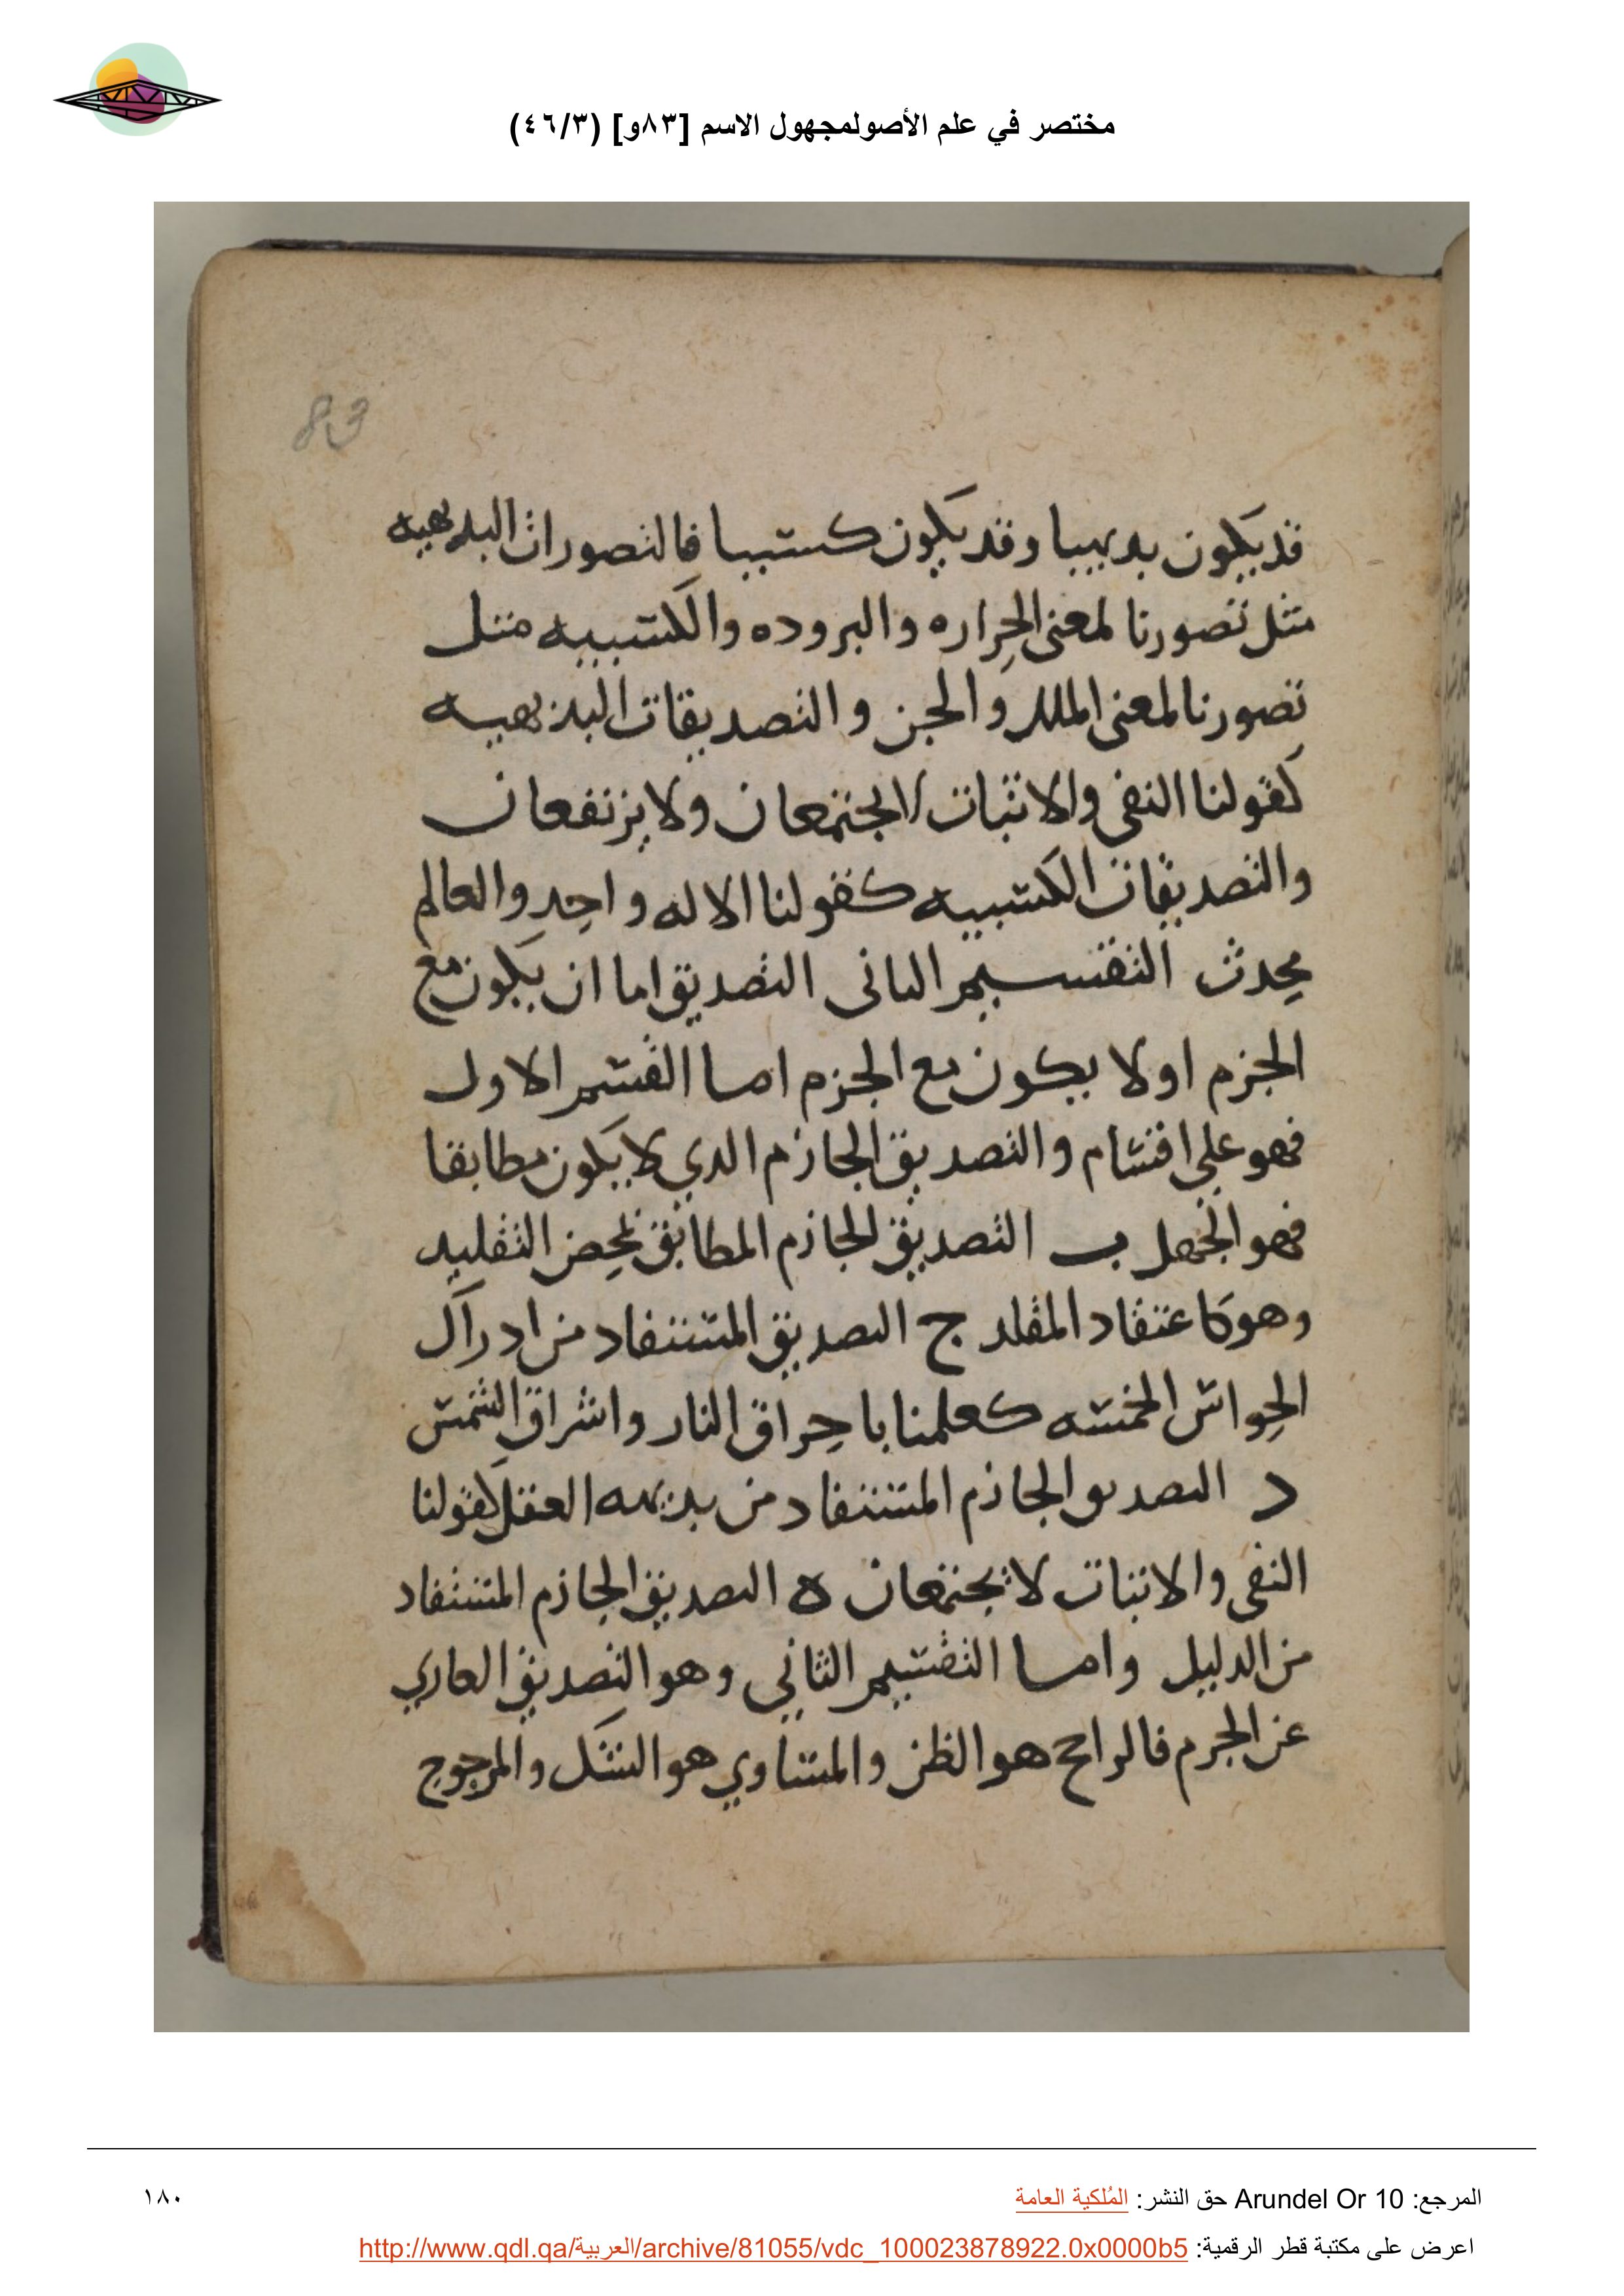 مختصر في علم الأصولمجهول الاسم [٨٣و] (٤٦/٣)
83
قد يكون بديهيا وقد يكون كسبيا فالتصورات البديهيه
مثل تصورنا لمعنى الحراره والبروده والكسبيه مثل
تصورنا لمعنى الملك والجن والتصديقات البديهيه
كقولنا النفى والاثبات لايجتمعان ولا يرتفعان
والتصديقات الكسبيه كقولنا الاله واحد والعالم
محدث التقسيم الثانى التصديق اما ان يكون مع
الجزم او لا يكون مع الجزم اما القسم الاول
فهو على اقسام والتصديق الجازم الدي لا يكون مطابقا
فهو الجهل ب التصديق الجازم المطابق لمحض التقليد
وهو كاعتقاد المقلد ج التصديق المستفاد من ادراك
الحواس الخمسه كعلمنا باحراق النار واشراق الشمس
د التصديق الجازم المستفاد من بديهه العقل كقولنا
النفى والاثبات لا يجتمعان ه التصديق الجازم المستفاد
من الدليل واما التقسيم الثاني وهو التصديق العاري
عن الجرم فالراجح هو الظن والمتساوي هو الشك والمرجوح
المرجع: Arundel Or 10 حق النشر: المُلكية العامة
١٨٠
اعرض على مكتبة قطر الرقمية: http://www.qdl.qa/العربية/archive/81055/vdc_100023878922.0x0000b5